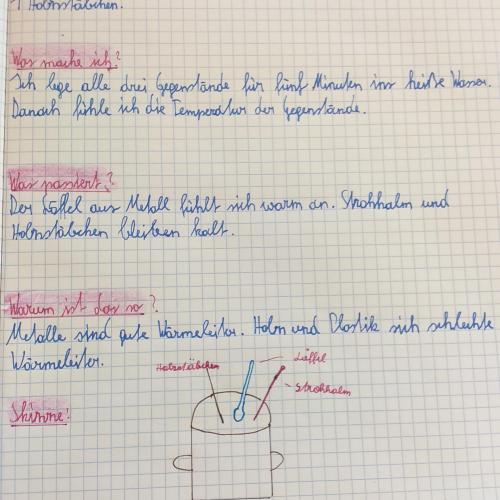 1 Holzstäbchen.
Was mache ich?
Ich lege alle drei Gegenstände für fünf Minuten ins heiße Wasser.
Danach fühle ich die Temperatur der Gegenstände.
Was passiert?
Der Löffel aus Metall fühlt sich warm an. Strohhalm und
Holzstäbchen bleiben kalt.
Warum ist das so?
Metalle sind gute Wärmeleiter. Holz und Plastik sich schlechte
Wärmeleiter.
Holzstäbchen
Löffel
Strohhalm
Skizze: